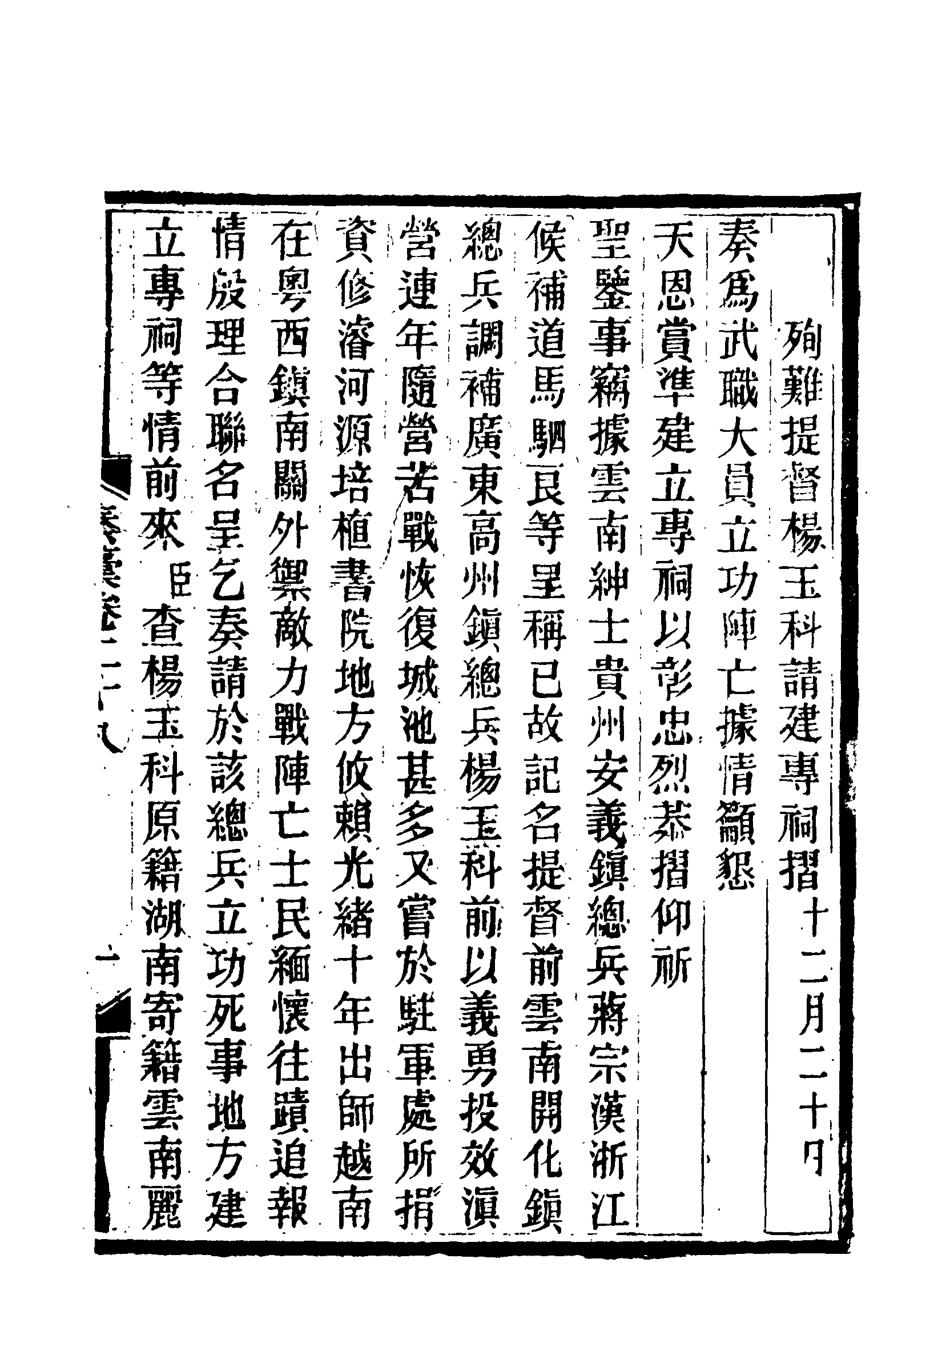 殉難提督楊玉科請建專祠摺 十二月二十日
奏爲武職大員立功陣亡據情籲懇
天恩賞準建立專祠以彰忠烈恭摺仰祈
聖鑒事竊據雲南紳士貴州安義鎮總兵蔣宗漢浙江
候補道馬駟良等呈稱已故記名提督前雲南開化鎮
總兵調補廣東高州鎮總兵楊玉科前以義勇投效滇
營連年隨營苦戰恢復城池甚多又嘗於駐軍處所捐
資修濬河源培植書院地方攸賴光緒十年出師越南
在粵西鎮南關外禦敵力戰陣亡士民緬懷往蹟追報
情殷理合聯名呈乞奏請於該總兵立功死事地方建
立專祠等情前來臣查楊玉科原籍湖南寄籍雲南麗
奏議卷二十八
一